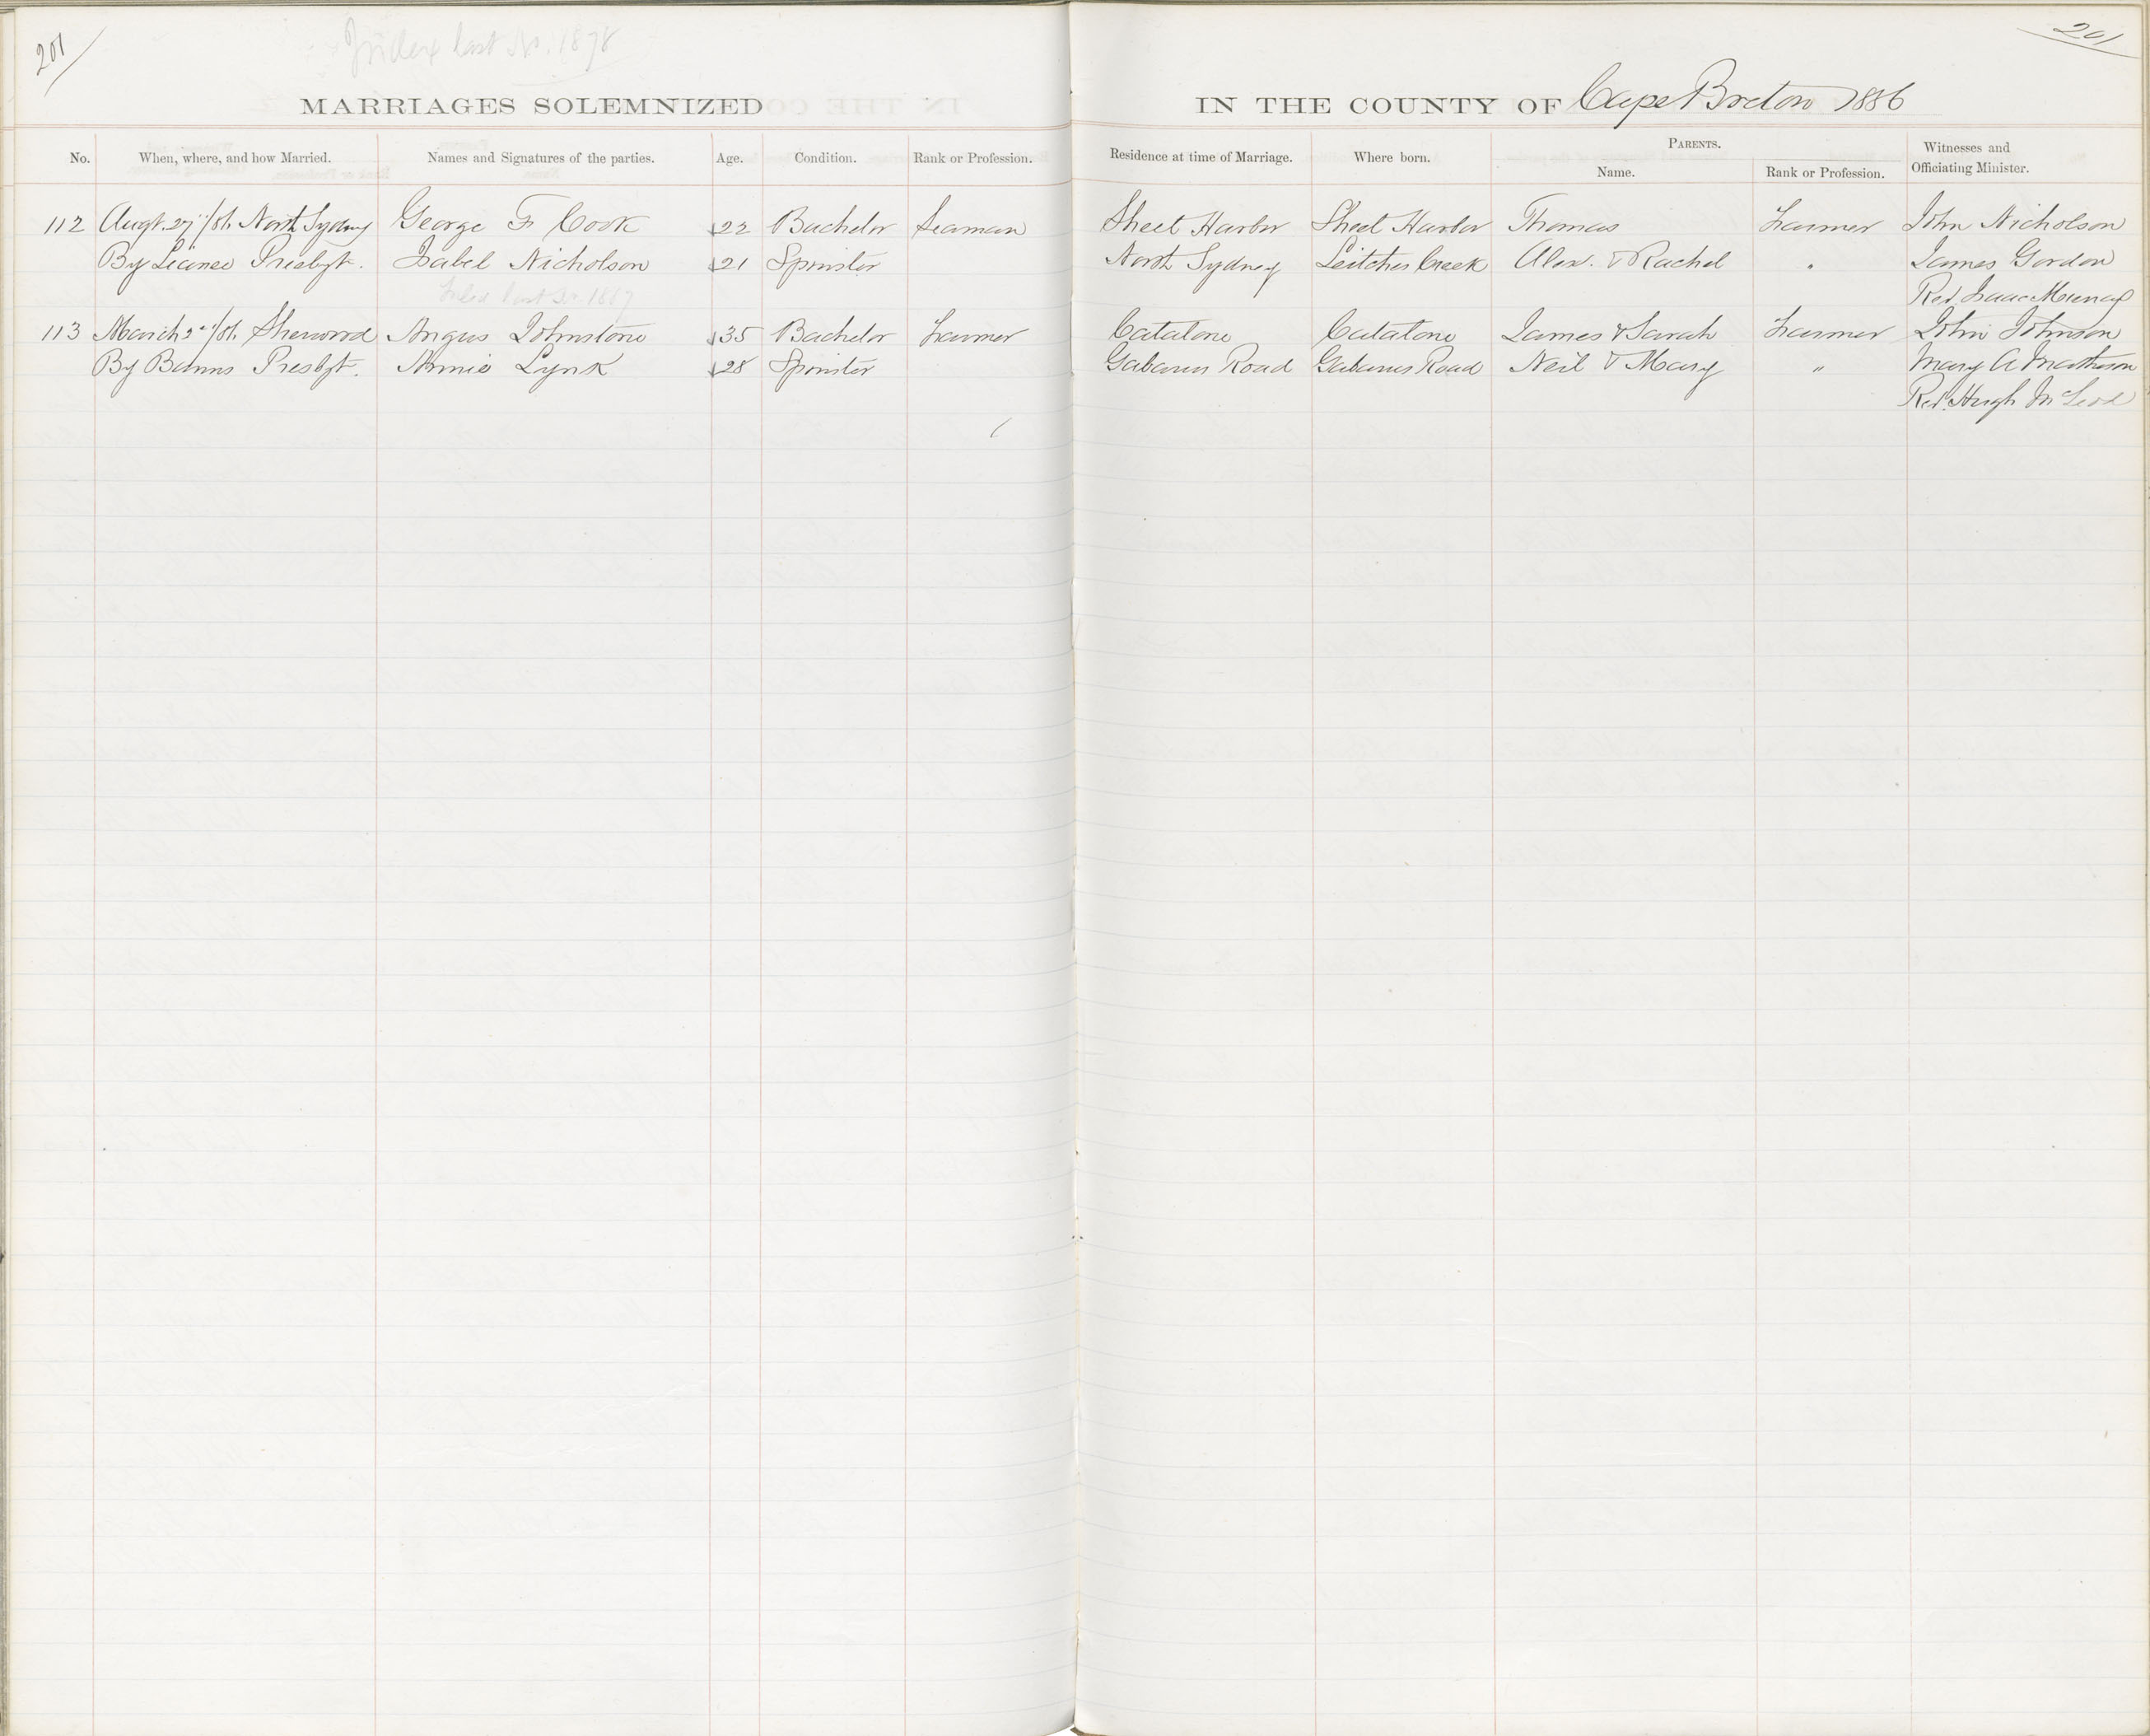 201
Index last No. 1878
201
MARRIAGES SOLEMNIZED
IN THE COUNTY OF Cape Breton 1886
No. When, where, and how Married. Names and Signatures of the parties. Age. Condition. Rank or Profession. Residence at time of Marriage. Where born. PARENTS. Witnesses and
Name. Rank or Profession. Officiating Minister.
112 Augt. 27 North Sydney George F Cook 22 Bachelor Seaman Sheet Harbor Sheet Harbor Thomas Farmer John Nicholson
By License Presbyt. Isabel Nicholson 21 Spinster North Sydney Leitches Creek Alex. & Rachel " James Gordon
Index last No. 1887 Rev. Isaac Murray
113 March 2nd Sherwood Angus Johnstone 35 Bachelor Farmer Catalone Catalone James & Sarah Farmer John Johnson
By Banns Presbyt. Annie Lynk 28 Spinster Gabarus Road Gabarus Road Neil & Mary " Mary A Matheson
Revd. Hugh McLeod